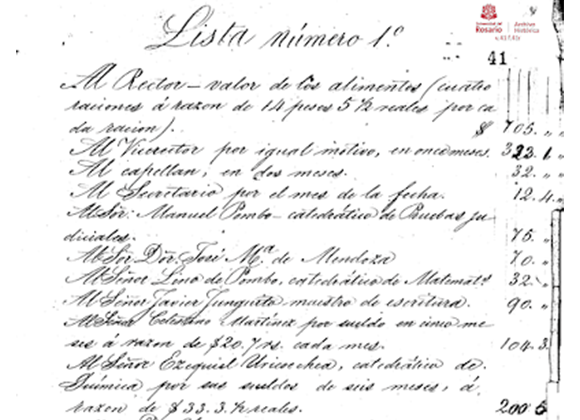 Universidad del
Rosario
Archivo
Histórico
v.43 f.41r
4
Lista número 1º
41
Al Rector - valor de los alimentos (cuatro
raciones á razon de 14 pesos 5 ½ reales por ca
da racion). $ 705. "
Al Vicerector por igual motivo, en once meses. 323. 1 "
Al capellan, en dos meses. 32. "
Al Secretario por el mes de la fecha. 12. 4. "
Al Sor. Manuel Pombo - catedrático de Pruebas ju
diciales. 75. "
Al Sor Dor. José Mª. de Mendoza 70. "
Al Señor Lino de Pombo, catedrático de Matemats. 32. "
Al Señor Javier Junguito maestro de escritura. 90. "
Al Señor Celestino Martínez por sueldo en cinco me
ses á razon de $20.7 rs. cada mes. 104. 3
Al Señor Ezequiel Uricochea, catedrático de
Química por sus sueldos de seis meses, á
razon de $33.3.½ reales. 200 5